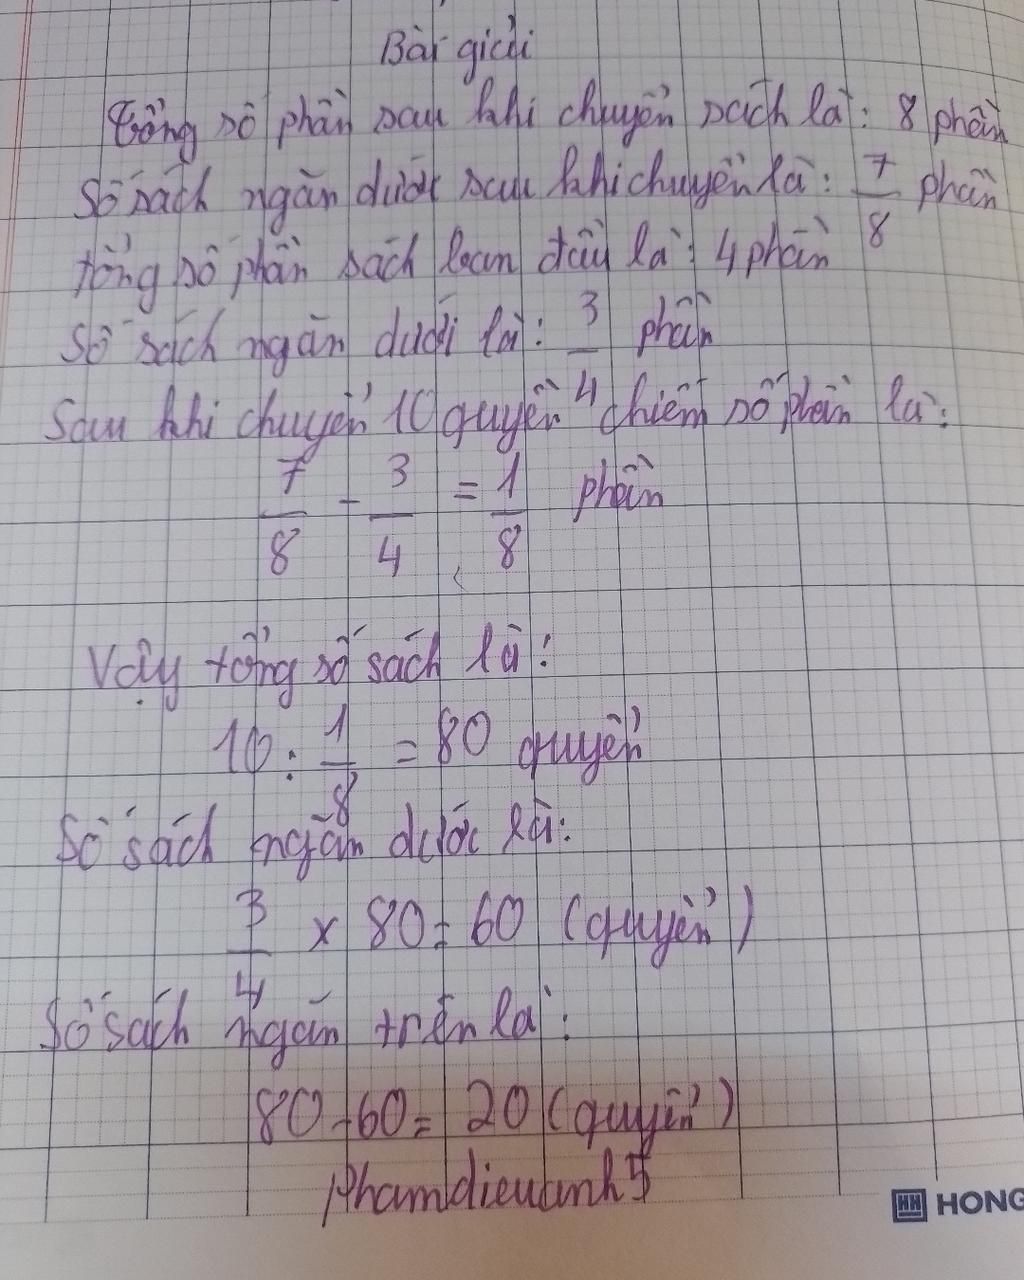 Bài giải
Tổng số phần sau khi chuyển sách là: 8 phần
Số sách ngăn dưới sau khi chuyển là: 7/8 phần
tổng số phần sách ban đầu là: 4 phần
Số sách ngăn dưới là: 3/4 phần
Sau khi chuyển 10 quyển chiếm số phần là:
7/8 - 3/4 = 1/8 phần
Vậy tổng số sách là:
10 : 1/8 = 80 quyển
Số sách ngăn dưới là:
3/4 x 80 = 60 (quyển)
Số sách ngăn trên là:
80 - 60 = 20 (quyển)
Phamdieuanh5
HH HONG